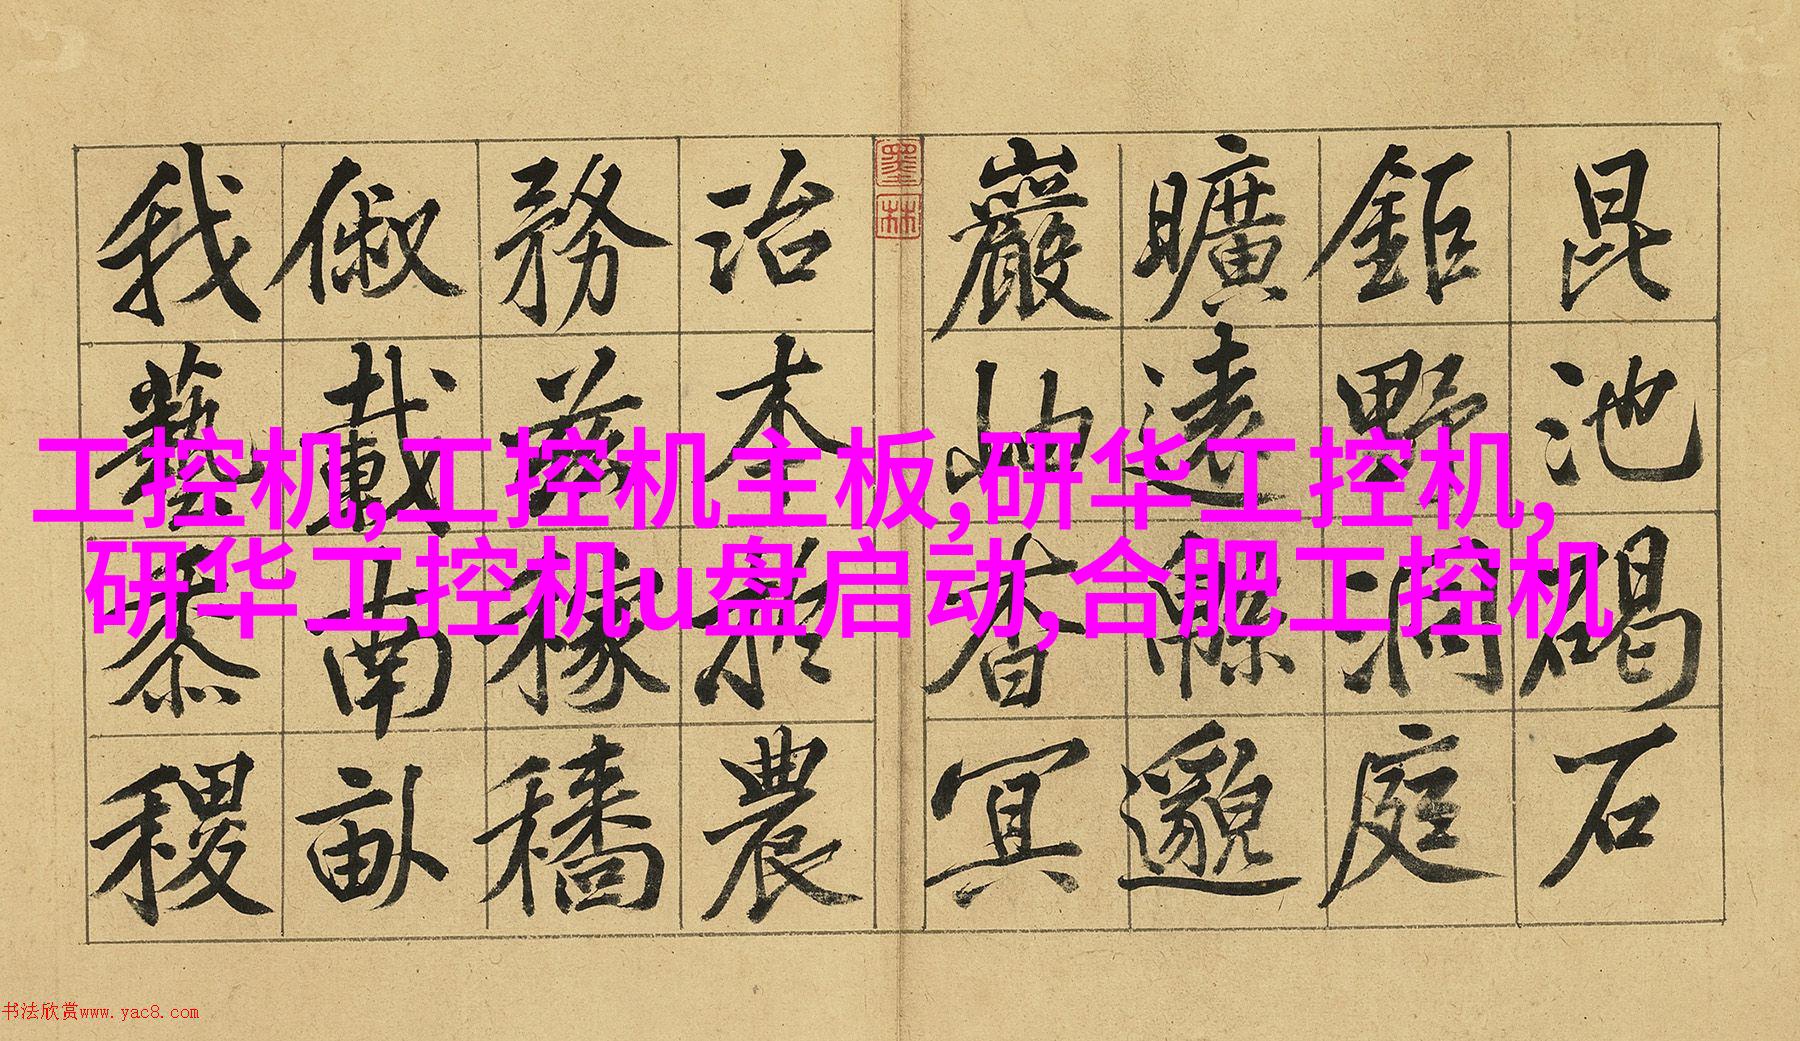 昆池碣石
鉅野洞庭
曠遠緜邈
巖岫杳冥
墨林
治本於農
務茲稼穡
俶載南畝
我藝黍稷
工控机,工控机主板,研华工控机,
研华工控机u盘启动,合肥工控机
书法欣赏www.yac8.com